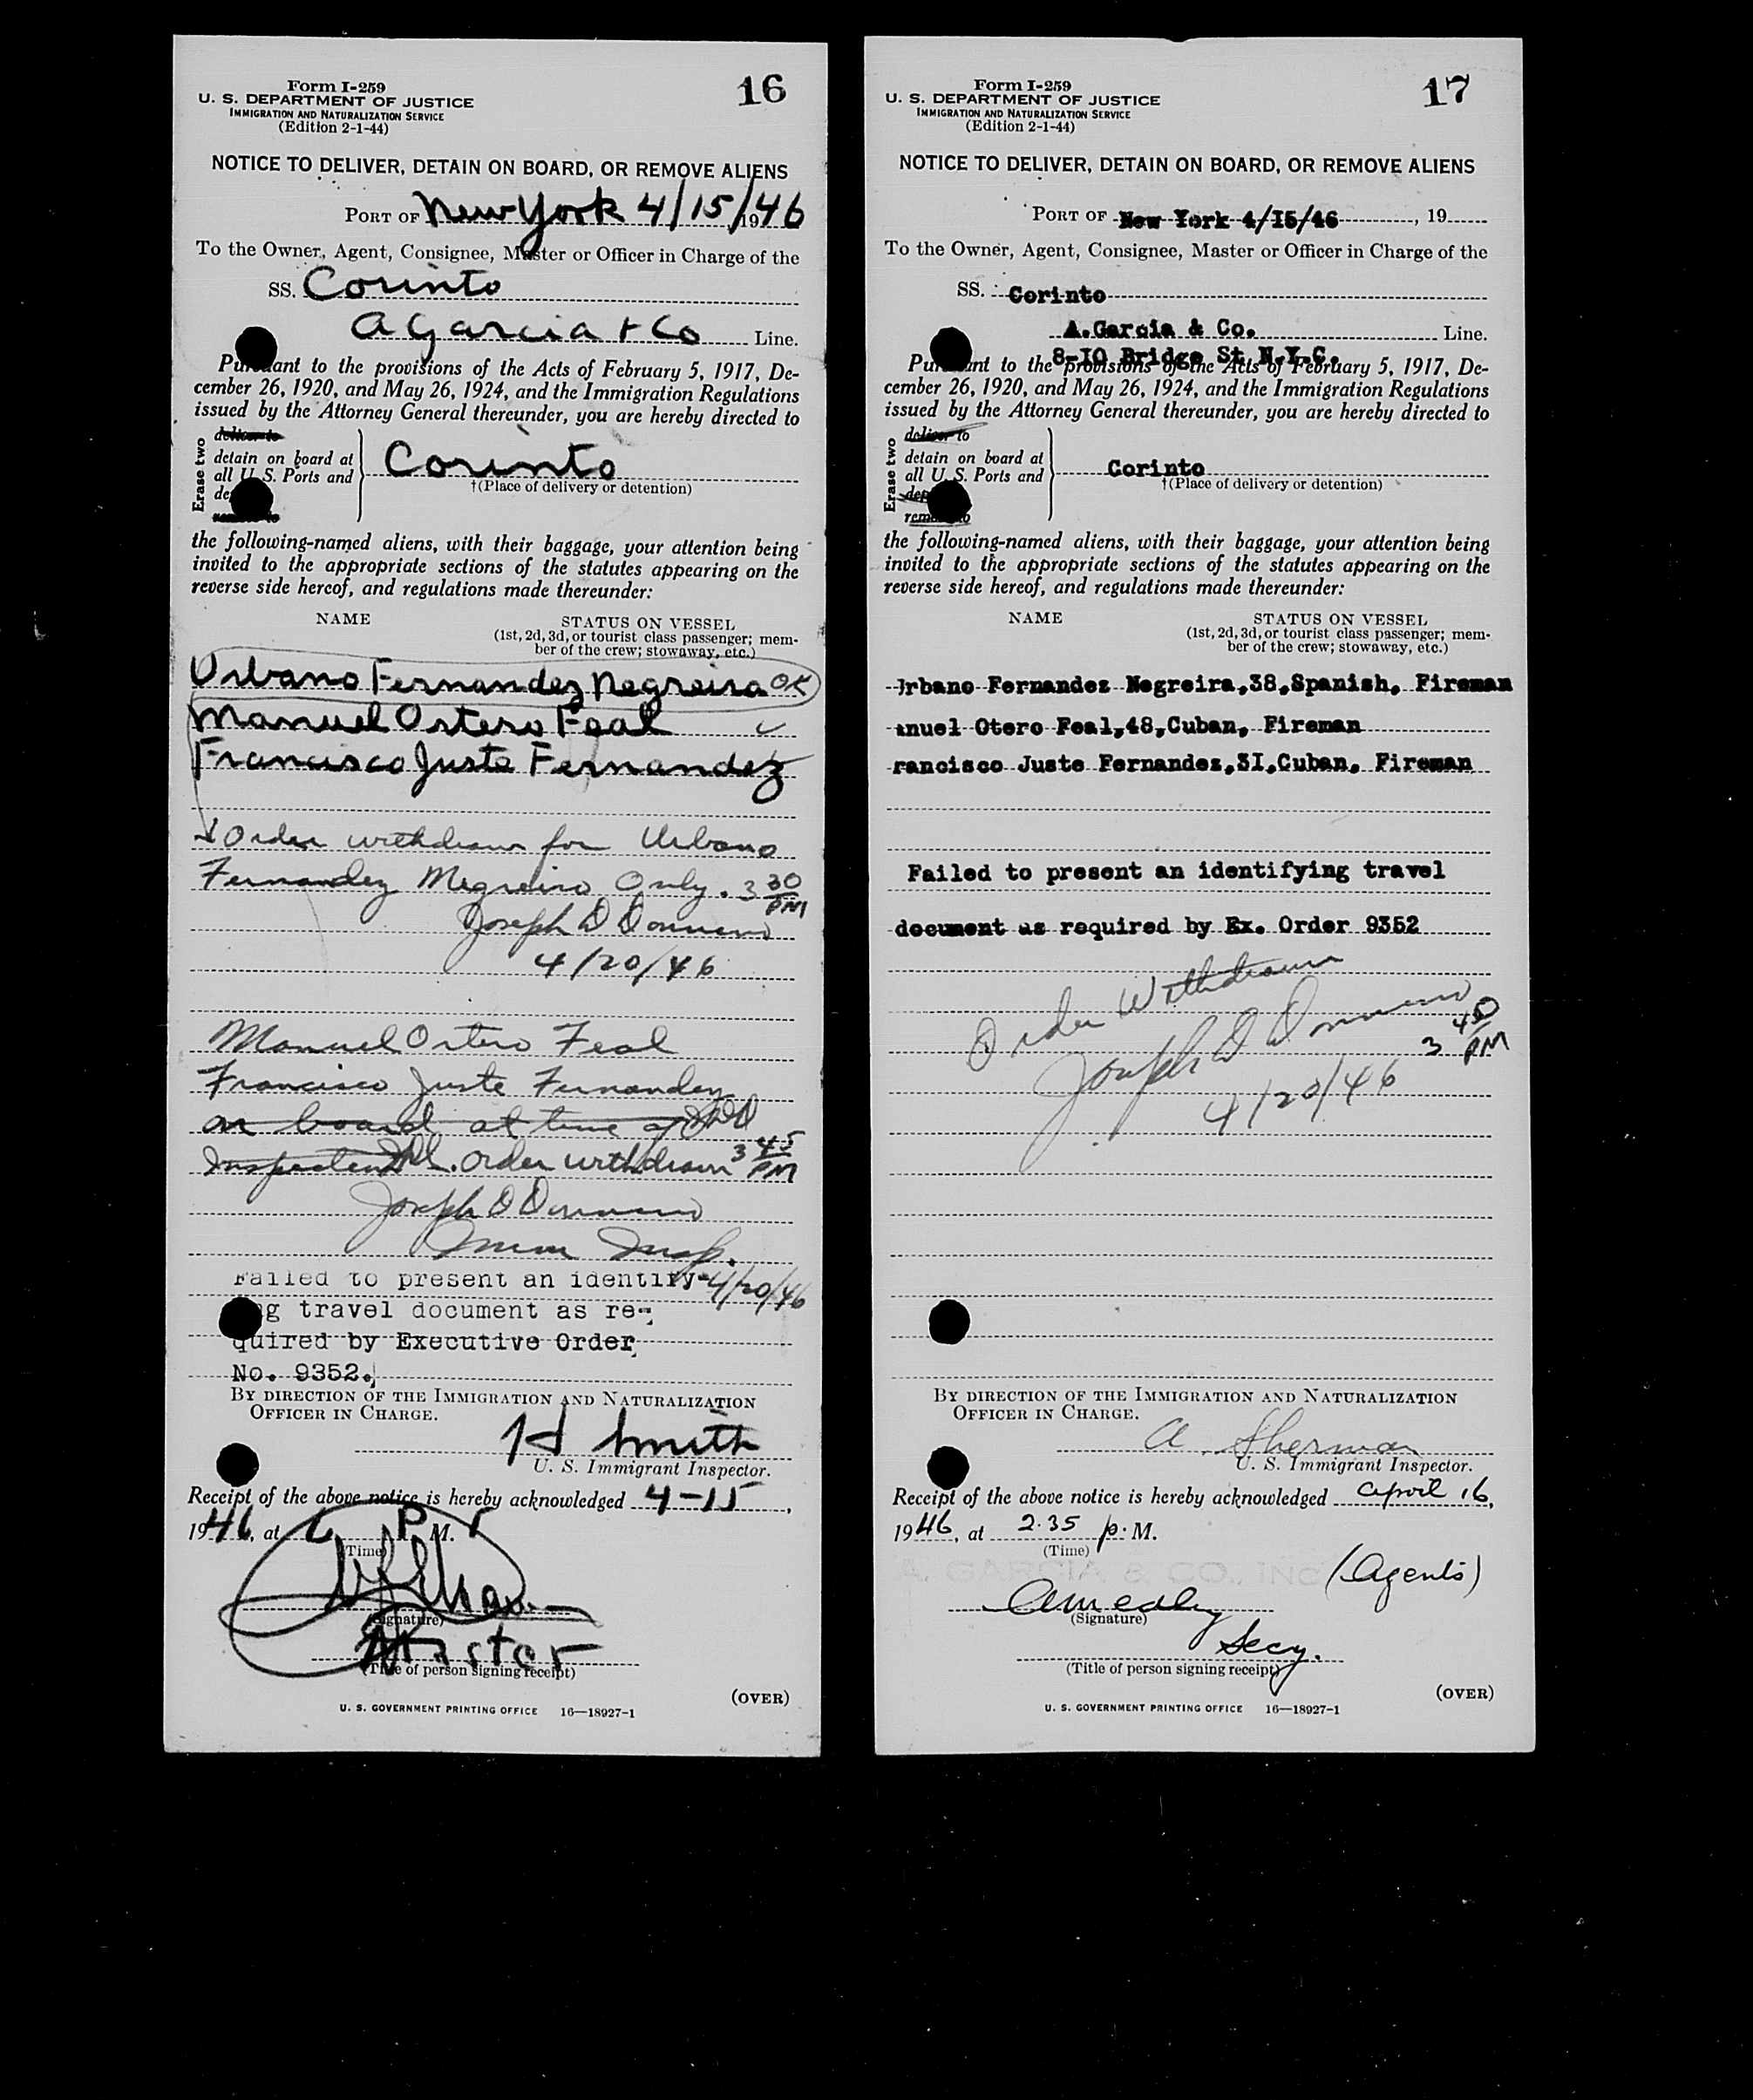 Form I-259
U. S. DEPARTMENT OF JUSTICE
IMMIGRATION AND NATURALIZATION SERVICE
(Edition 2-1-44)
16
NOTICE TO DELIVER, DETAIN ON BOARD, OR REMOVE ALIENS
PORT OF New York 4/15/1946
To the Owner, Agent, Consignee, Master or Officer in Charge of the
SS. Corinto
A Garcia + Co Line.
Pursuant to the provisions of the Acts of February 5, 1917, De-
cember 26, 1920, and May 26, 1924, and the Immigration Regulations
issued by the Attorney General thereunder, you are hereby directed to
Erase two
deliver to
detain on board at
all U. S. Ports and
de
remove to
Corinto
†(Place of delivery or detention)
the following-named aliens, with their baggage, your attention being
invited to the appropriate sections of the statutes appearing on the
reverse side hereof, and regulations made thereunder:
NAME
STATUS ON VESSEL
(1st, 2d, 3d, or tourist class passenger; mem-
ber of the crew; stowaway, etc.)
Urbano Fernandez Negreira OK
Manuel Ostero Feal ✓
Francisco Juste Fernandez
Order withdrawn for Urbano
Fernandez Megreira Only. 3 30 PM
Joseph D
4/20/46
Manuel Ortero Feal
Francisco Juste Fernandez
on board at time of JDD
Inspection JDD. Order withdrawn 3 45 PM
Joseph D
Imm Insp.
Failed to present an identify- 4/20/46
g travel document as re-
quired by Executive Order
No. 9352.
BY DIRECTION OF THE IMMIGRATION AND NATURALIZATION
OFFICER IN CHARGE.
H Smith
U. S. Immigrant Inspector.
Receipt of the above notice is hereby acknowledged 4-15,
1946, at 6 P M.
(Time)
(Signature)
Master
(Title of person signing receipt)
(OVER)
U. S. GOVERNMENT PRINTING OFFICE 16—18927-1
Form I-259
U. S. DEPARTMENT OF JUSTICE
IMMIGRATION AND NATURALIZATION SERVICE
(Edition 2-1-44)
17
NOTICE TO DELIVER, DETAIN ON BOARD, OR REMOVE ALIENS
PORT OF New York 4/I5/46, 19
To the Owner, Agent, Consignee, Master or Officer in Charge of the
SS. Corinto
A.Garcia & Co. Line.
8-IO Bridge St. N.Y.C.
Pursuant to the provisions of the Acts of February 5, 1917, De-
cember 26, 1920, and May 26, 1924, and the Immigration Regulations
issued by the Attorney General thereunder, you are hereby directed to
Erase two
deliver to
detain on board at
all U. S. Ports and
dep
remove to
Corinto
†(Place of delivery or detention)
the following-named aliens, with their baggage, your attention being
invited to the appropriate sections of the statutes appearing on the
reverse side hereof, and regulations made thereunder:
NAME
STATUS ON VESSEL
(1st, 2d, 3d, or tourist class passenger; mem-
ber of the crew; stowaway, etc.)
Urbano Fernandez Negreira,38,Spanish, Fireman
anuel Otero Feal,48,Cuban, Fireman
rancisco Juste Fernandez,3I,Cuban, Fireman
Failed to present an identifying travel
document as required by Ex. Order 9352
Order Withdrawn
Joseph D
3 45 PM
4/20/46
BY DIRECTION OF THE IMMIGRATION AND NATURALIZATION
OFFICER IN CHARGE.
A. Sherman
U. S. Immigrant Inspector.
Receipt of the above notice is hereby acknowledged April 16,
1946, at 2.35 p. M.
(Time)
A. GARCIA & CO., INC
(Agents)
(Signature)
Secy.
(Title of person signing receipt)
(OVER)
U. S. GOVERNMENT PRINTING OFFICE 16—18927-1